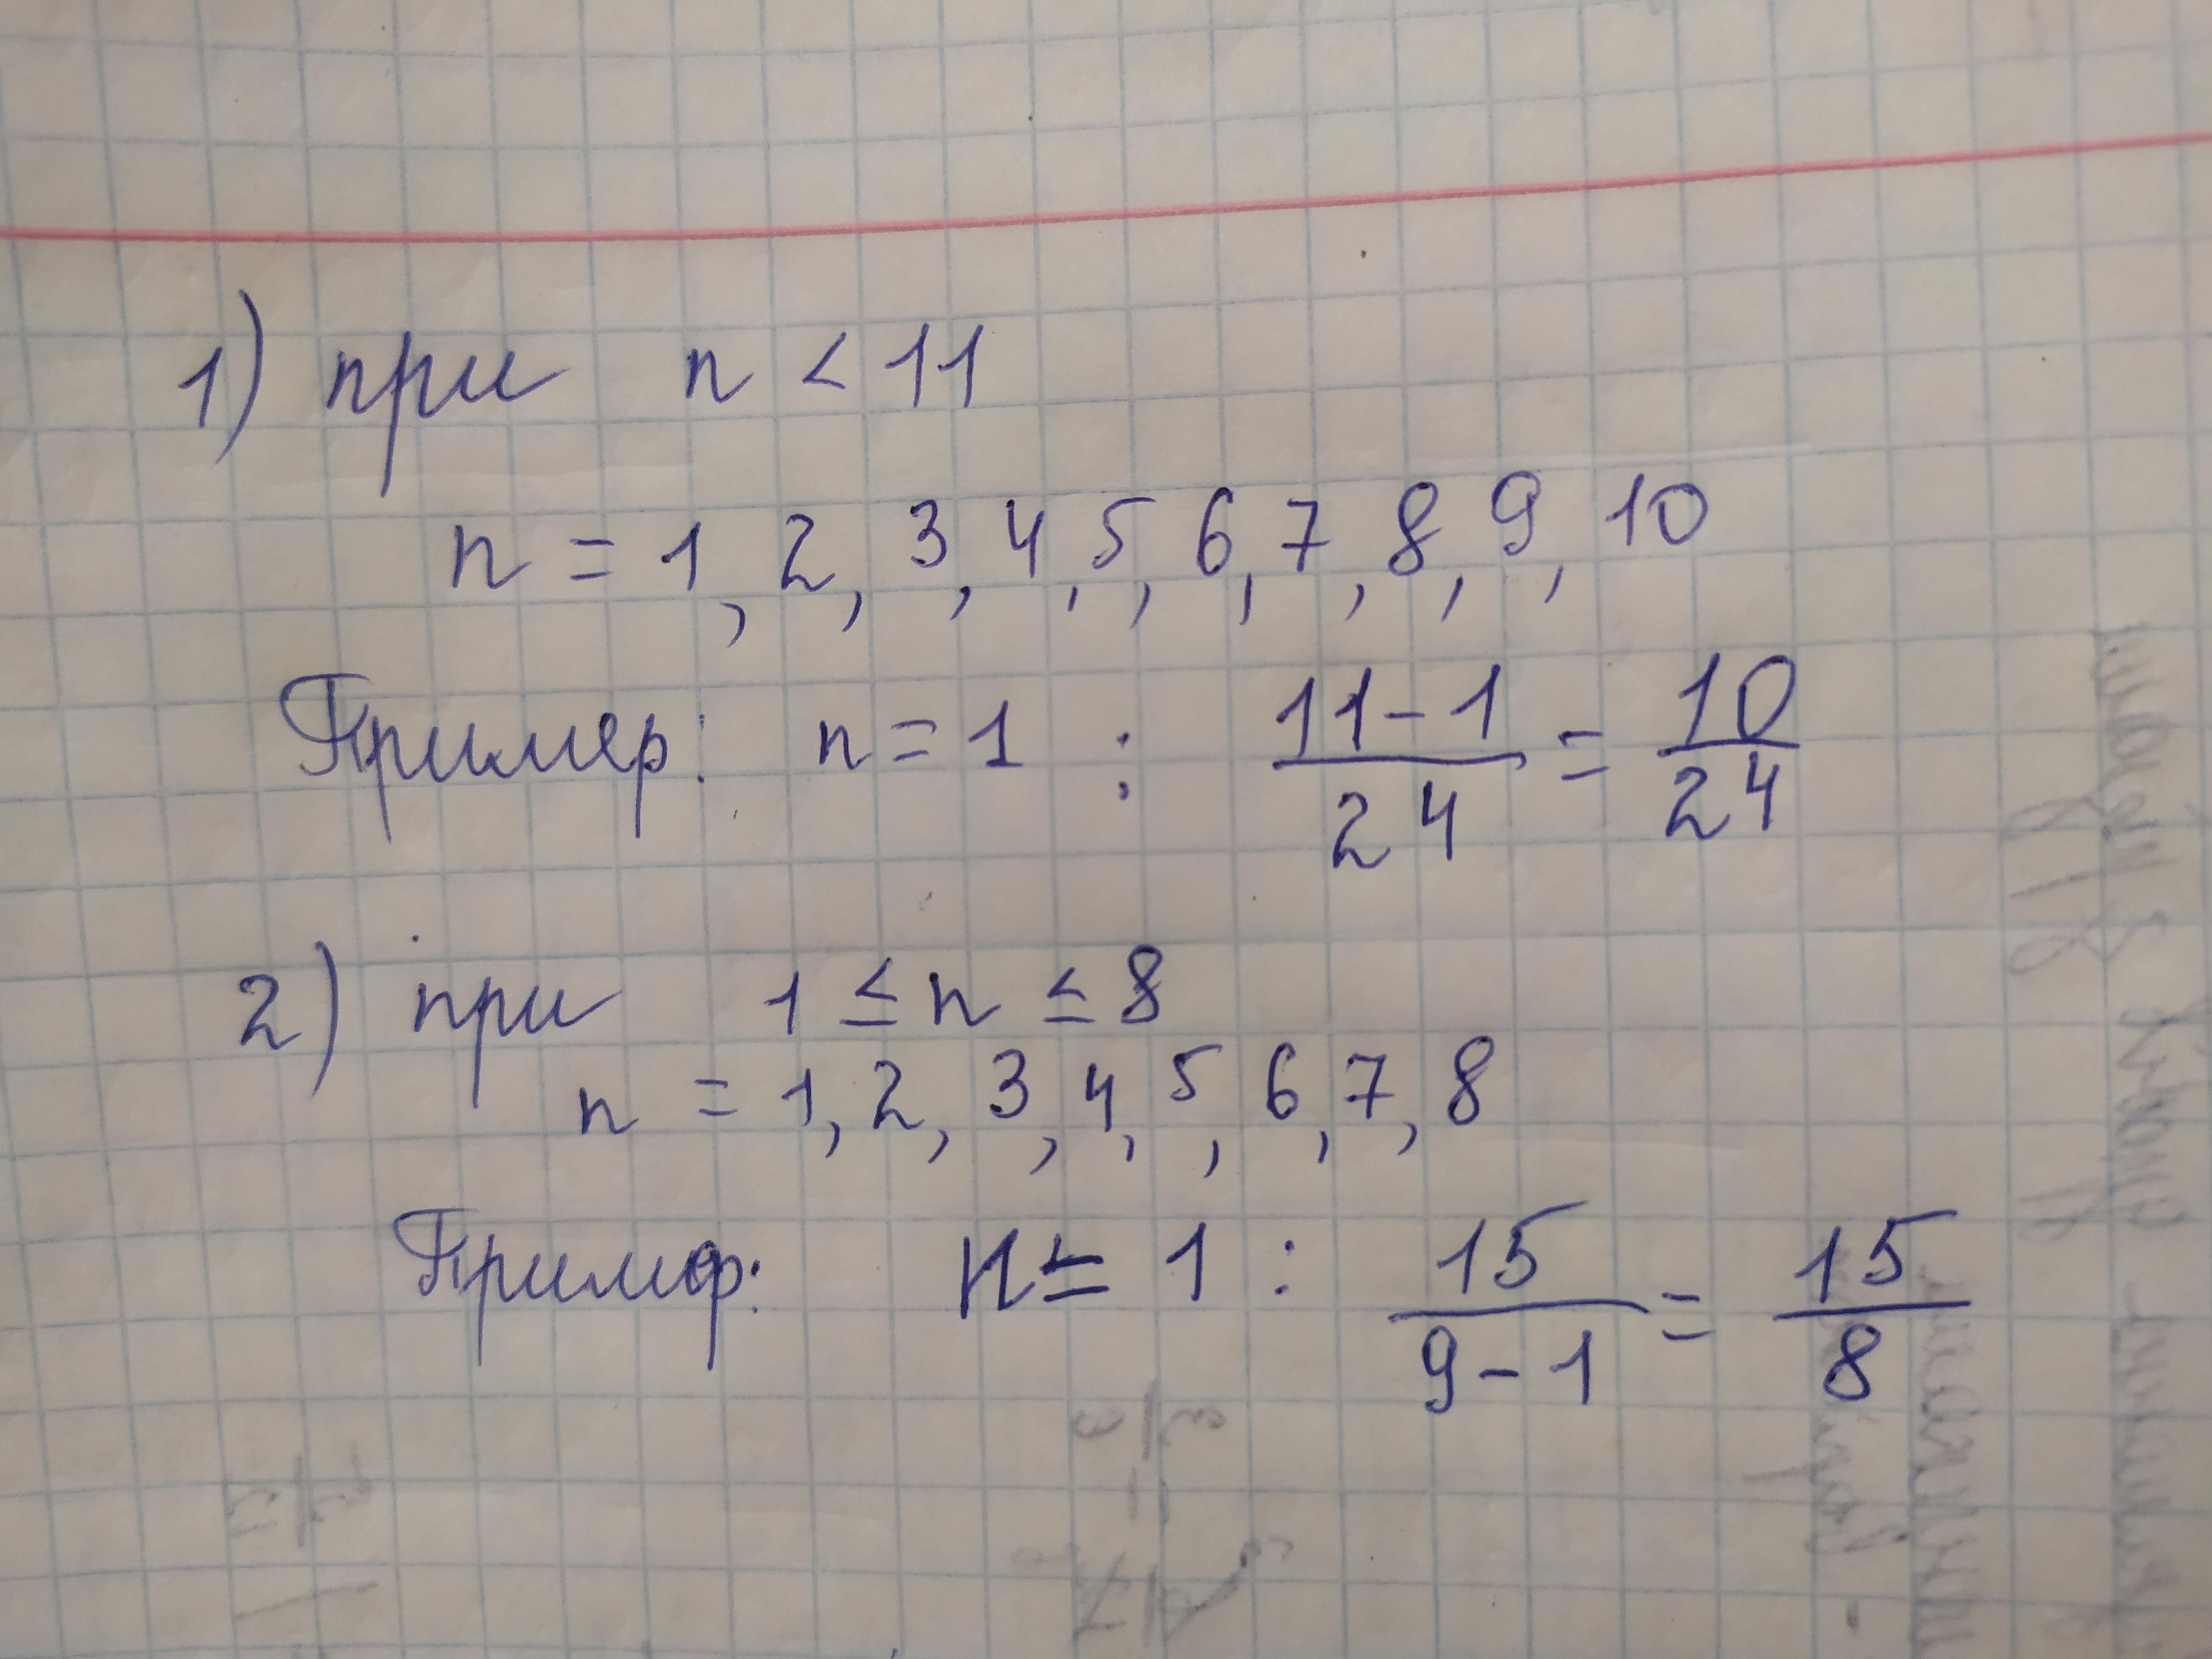 1) при n < 11
n = 1, 2, 3, 4, 5, 6, 7, 8, 9, 10
Пример: n = 1 : 11-1/24 = 10/24
2) при 1 ≤ n ≤ 8
n = 1, 2, 3, 4, 5, 6, 7, 8
Пример: n = 1 : 15/9-1 = 15/8